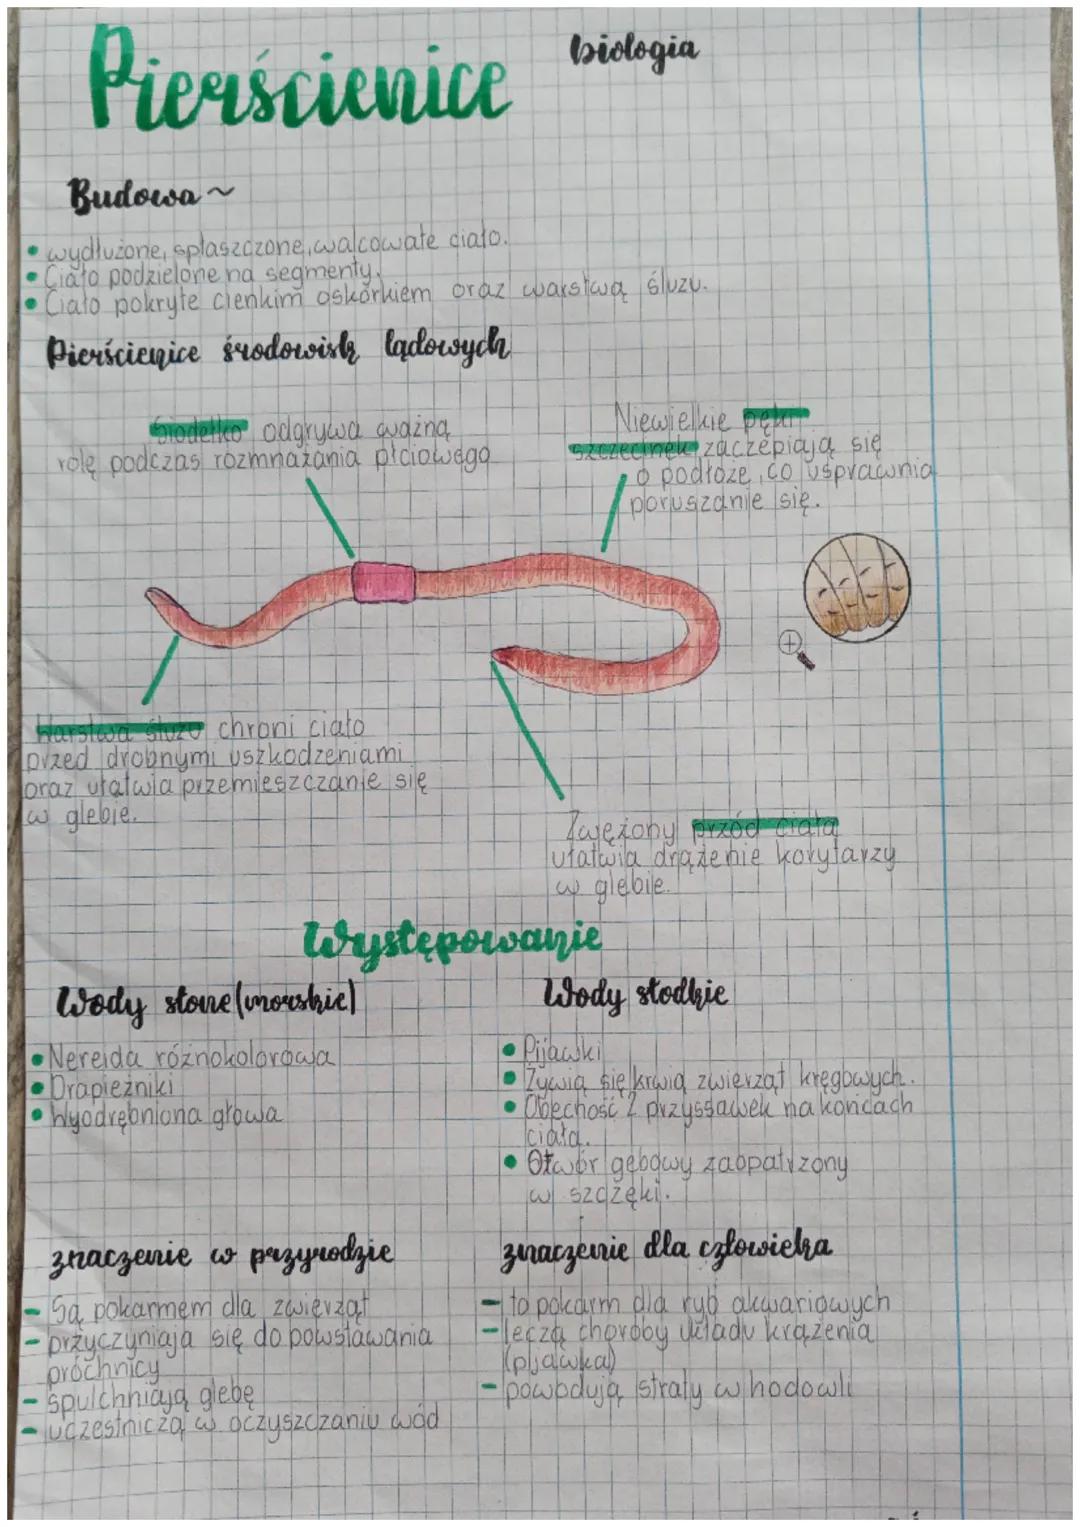 Pierścienice
biologia
Budowa ~
• wydłużone, spłaszczone, walcowate ciało.
• Ciało podzielone na segmenty.
• Ciało pokryte cienkim oskórkiem oraz warstwą śluzu.
Pierścienice środowisk lądowych
Siodełko odgrywa ważną
rolę podczas rozmnażania płciowego
Niewielkie pęki
szczecinek zaczepiają się
o podłoże, co usprawnia
poruszanie się.
Warstwa śluzu chroni ciało
przed drobnymi uszkodzeniami
oraz ułatwia przemieszczanie się
w glebie.
Zwężony przód ciała
ułatwia drążenie korytarzy
w glebie.
Występowanie
Wody słone (morskie)
• Nereida różnokolorowa
• Drapieżniki
• Wyodrębniona głowa
Wody słodkie
• Pijawki
• Żywią się krwią zwierząt kręgowych.
• Obecność 2 przyssawek na końcach
ciała.
• Otwór gębowy zaopatrzony
w szczęki.
znaczenie w przyrodzie
- Są pokarmem dla zwierząt
- przyczyniają się do powstawania
próchnicy
- spulchniają glebę
- uczestniczą w oczyszczaniu wód
znaczenie dla człowieka
- to pokarm dla ryb akwariowych
- leczą choroby układu krążenia
(pijawka)
- powodują straty w hodowli